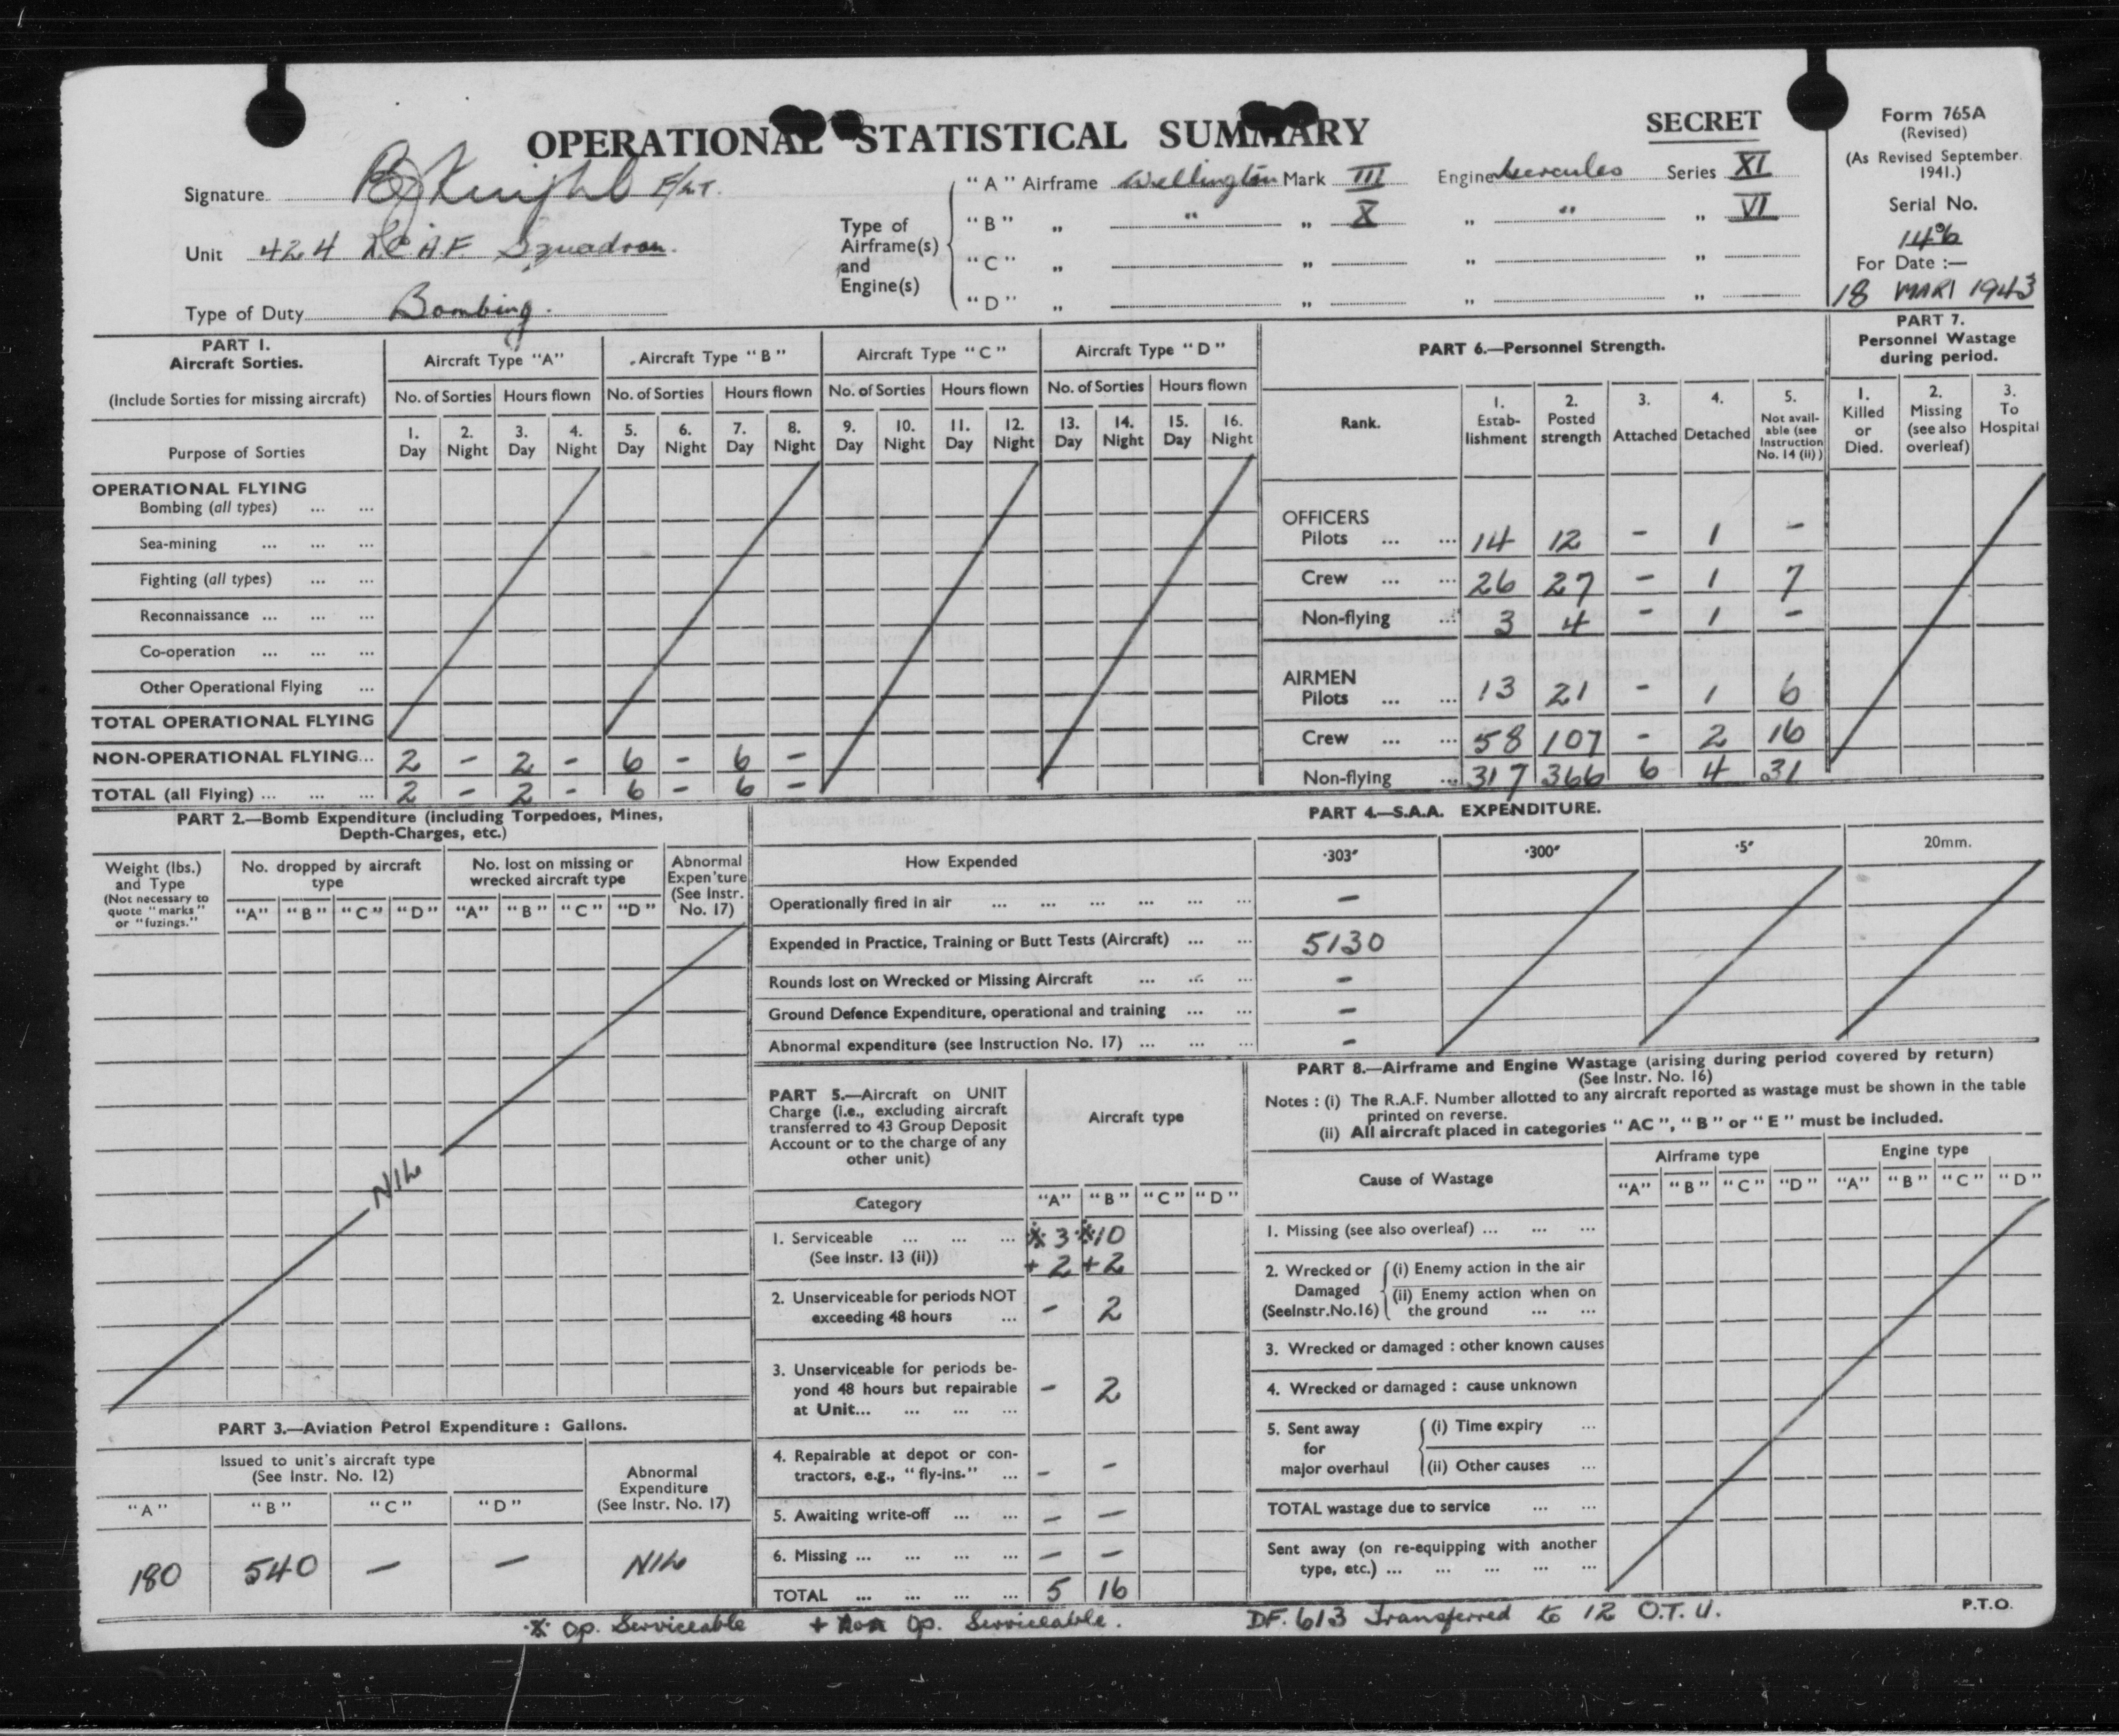 OPERATIONAL STATISTICAL SUMMARY
SECRET
Form 765A
(Revised)
(As Revised September 1941.)
Serial No.
For Date :—
18 MAR 1943
Signature Knight F/LT.
Unit 424 R.C.A.F. Squadron.
Type of Duty Bombing.
Type of Airframe(s) and Engine(s)
"A" Airframe Wellington Mark III Engine Hercules Series XI
"B" „ " „ X „ " „ VI
"C" „ „ „ „
"D" „ „ „ „
PART 1.
Aircraft Sorties.
(Include Sorties for missing aircraft)
Purpose of Sorties
Aircraft Type "A" Aircraft Type "B" Aircraft Type "C" Aircraft Type "D"
No. of Sorties Hours flown No. of Sorties Hours flown No. of Sorties Hours flown No. of Sorties Hours flown
1. 2. 3. 4. 5. 6. 7. 8. 9. 10. 11. 12. 13. 14. 15. 16.
Day Night Day Night Day Night Day Night Day Night Day Night Day Night Day Night
OPERATIONAL FLYING
Bombing (all types) ... ...
Sea-mining ... ... ...
Fighting (all types) ... ...
Reconnaissance ... ... ...
Co-operation ... ... ...
Other Operational Flying ...
TOTAL OPERATIONAL FLYING
NON-OPERATIONAL FLYING... 2 - 2 - 6 - 6 -
TOTAL (all Flying) ... ... ... 2 - 2 - 6 - 6 -
PART 6.—Personnel Strength.
Rank.
1. Estab-lishment
2. Posted strength
3. Attached
4. Detached
5. Not avail-able (see Instruction No. 14 (ii))
OFFICERS
Pilots ... ... 14 12 - 1 -
Crew ... ... 26 27 - 1 7
Non-flying ... 3 4 - 1 -
AIRMEN
Pilots ... ... 13 21 - 1 6
Crew ... ... 58 107 - 2 16
Non-flying ... 317 366 6 4 31
PART 7.
Personnel Wastage during period.
1. Killed or Died.
2. Missing (see also overleaf)
3. To Hospital
PART 2.—Bomb Expenditure (including Torpedoes, Mines,
Depth-Charges, etc.)
Weight (lbs.) and Type (Not necessary to quote "marks" or "fuzings."
No. dropped by aircraft type
No. lost on missing or wrecked aircraft type
Abnormal Expen'ture (See Instr. No. 17)
"A" "B" "C" "D" "A" "B" "C" "D"
NIL
PART 3.—Aviation Petrol Expenditure : Gallons.
Issued to unit's aircraft type
(See Instr. No. 12)
Abnormal Expenditure (See Instr. No. 17)
"A" "B" "C" "D"
180 540 — — NIL
PART 4.—S.A.A. EXPENDITURE.
How Expended ·303" ·300" ·5" 20mm.
Operationally fired in air ... ... ... ... ... ... —
Expended in Practice, Training or Butt Tests (Aircraft) ... ... 5130
Rounds lost on Wrecked or Missing Aircraft ... ... ... -
Ground Defence Expenditure, operational and training ... ... —
Abnormal expenditure (see Instruction No. 17) ... ... ... -
PART 5.—Aircraft on UNIT
Charge (i.e., excluding aircraft
transferred to 43 Group Deposit
Account or to the charge of any
other unit)
Aircraft type
Category "A" "B" "C" "D"
1. Serviceable ... ... ... * 3 * 10
(See Instr. 13 (ii)) + 2 + 2
2. Unserviceable for periods NOT
exceeding 48 hours ... - 2
3. Unserviceable for periods be-
yond 48 hours but repairable - 2
at Unit... ... ... ...
4. Repairable at depot or con-
tractors, e.g., "fly-ins." ... - -
5. Awaiting write-off ... ... — —
6. Missing ... ... ... ... — —
TOTAL ... ... ... ... 5 16
PART 8.—Airframe and Engine Wastage (arising during period covered by return)
(See Instr. No. 16)
Notes : (i) The R.A.F. Number allotted to any aircraft reported as wastage must be shown in the table
printed on reverse.
(ii) All aircraft placed in categories "AC", "B" or "E" must be included.
Cause of Wastage Airframe type Engine type
"A" "B" "C" "D" "A" "B" "C" "D"
1. Missing (see also overleaf) ... ... ...
2. Wrecked or Damaged (SeeInstr.No.16)
(i) Enemy action in the air
(ii) Enemy action when on
the ground ... ...
3. Wrecked or damaged : other known causes
4. Wrecked or damaged : cause unknown
5. Sent away for major overhaul
(i) Time expiry ...
(ii) Other causes ...
TOTAL wastage due to service ... ...
Sent away (on re-equipping with another
type, etc.) ... ... ... ... ...
* Op. Serviceable + Non Op. Serviceable. DF. 613 Transferred to 12 O.T.U.
P.T.O.